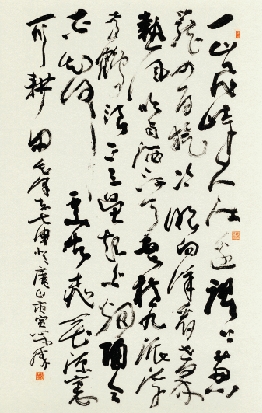 一山飛峙大江邊躍上葱
蘢四百旋冷眼向洋看世界
熱風吹雨洒江天雲橫九派浮
黃鶴浪下三吳起白烟陶令
不知何處去桃花源裏
可耕田毛澤東七律登廬山